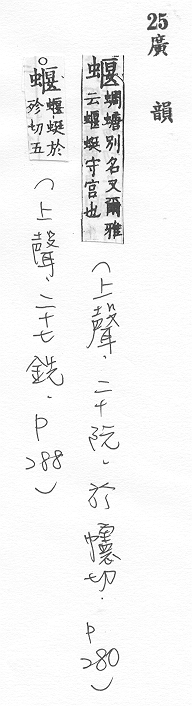 25廣韻
蝘蜩螗別名又爾雅
云蝘蜓守宮也
(上聲.二十阮.於幰切.p280)
○蝘蝘蜓於
殄切五
(上聲.二十七銑.p288)